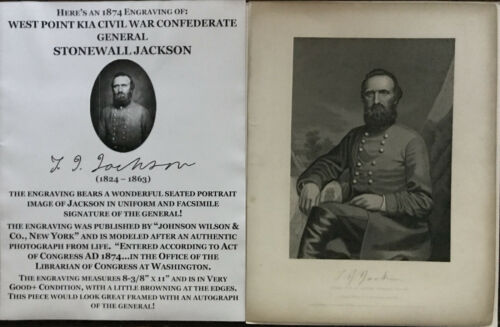 HERE'S AN 1874 ENGRAVING OF:
WEST POINT KIA CIVIL WAR CONFEDERATE
GENERAL
STONEWALL JACKSON
T. J. Jackson
(1824 – 1863)
THE ENGRAVING BEARS A WONDERFUL SEATED PORTRAIT
IMAGE OF JACKSON IN UNIFORM AND FACSIMILE
SIGNATURE OF THE GENERAL!
THE ENGRAVING WAS PUBLISHED BY "JOHNSON WILSON &
CO., NEW YORK" AND IS MODELED AFTER AN AUTHENTIC
PHOTOGRAPH FROM LIFE. "ENTERED ACCORDING TO ACT
OF CONGRESS AD 1874...IN THE OFFICE OF THE
LIBRARIAN OF CONGRESS AT WASHINGTON.
THE ENGRAVING MEASURES 8-3/8" X 11" AND IS IN VERY
GOOD+ CONDITION, WITH A LITTLE BROWNING AT THE EDGES.
THIS PIECE WOULD LOOK GREAT FRAMED WITH AN AUTOGRAPH
OF THE GENERAL!
T. J. Jackson